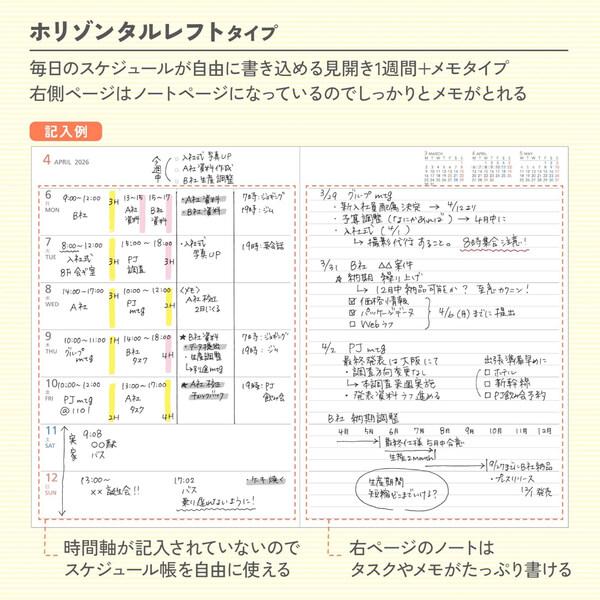 ホリゾンタルレフトタイプ
毎日のスケジュールが自由に書き込める見開き1週間＋メモタイプ
右側ページはノートページになっているのでしっかりとメモがとれる
記入例
4 APRIL 2026
今週中
入社式 写真UP
B社 資料作成
B社 生産調整
3 MARCH
4 APRIL
5 MAY
6 月 MON
9:00~12:00 3H
B社
13~15
A社 資料
15~17
B社 資料
A社 資料
B社 資料
7時:ジョギング
19時:ジム
7 火 TUE
8:00~12:00
入社式
8F会議室
15:00~18:00 3H
PJ
調査
・入社式
写真UP
19時:英会話
8 水 WED
9:00~12:00 3H
A社
10:00~12:00 2H
PJ
mtg
<メモ>
A社 移動
2月にくる
9 木 THU
9:00~11:00 2H
グループ
mtg
14:00~18:00 4H
B社
タスク
★B社 資料
・データ提出
・生産調整
7時:ジョギング
19時:ジム
10 金 FRI
10:00~12:00 2H
PJ mtg
@1101
13:00~17:00 4H
A社
タスク
★A社 移動
チェックバック
19時:PJ
飲み会
11 土 SAT
実家
9:08
○○駅
バス
12 日 SUN
13:00~
××誕生会!!
17:02
バス
乗り遅れないように!
3/29 グループ mtg
・新入社員配属決定 → 4/12より
・予算調整(なにかあれば) → 4月中に
・入社式(4/1)
↳ 撮影代行すること。 8時集合注意!
3/31 B社 △△案件
★納期 繰り上げ
↳ 12月中納品可能か? 至急カクニン!
☑ 価格情報
☑ パッケージデータ
☑ Webラフ
4/6(月)までに提出
4/2 PJ mtg
最終発表は大阪にて
・調査方向変更なし
↳ 本調査来週実施
・発表資料ラフ進める
出張準備早めに
□ ホテル
□ 新幹線
□ PJ飲み会予約
B社 納期調整
4月 5月 6月 7月 8月 9月 10月 11月 12月
最終仕様 5月中合意
生産2month!
9/27まで B社納品
・プレスリリース
12/1 発売
生産期間
短縮どこまでいける?
時間軸が記入されていないので
スケジュール帳を自由に使える
右ページのノートは
タスクやメモがたっぷり書ける